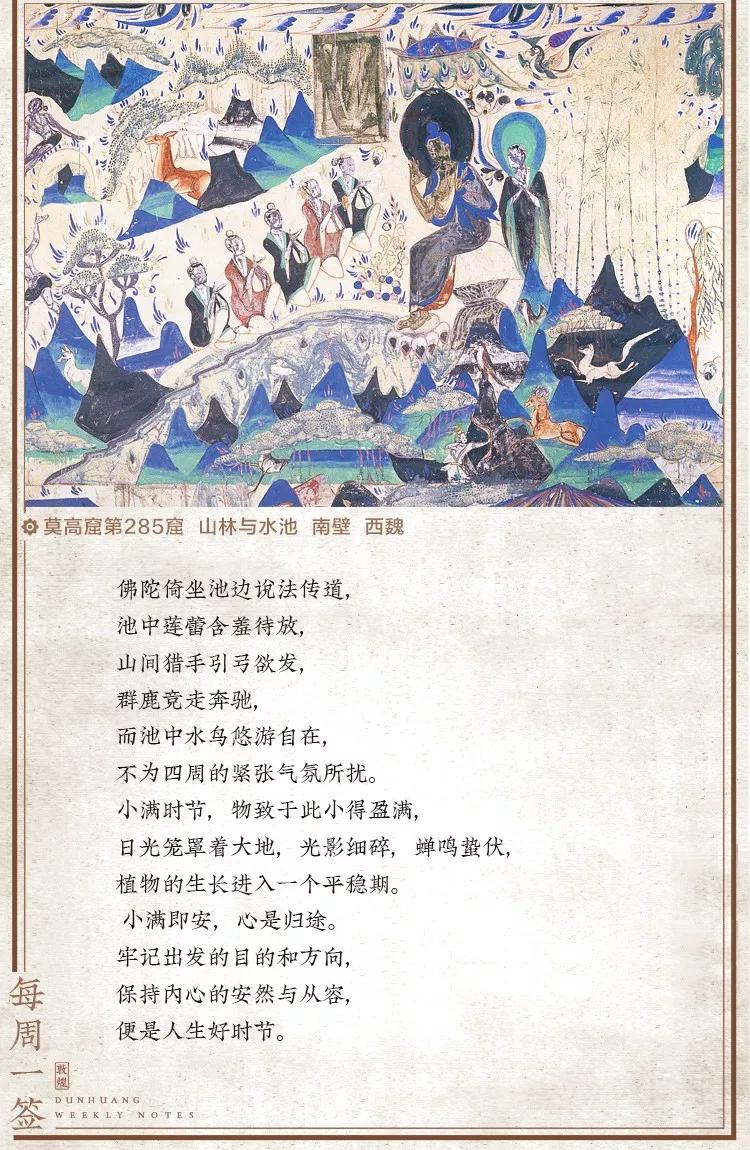 莫高窟第285窟 山林与水池 南壁 西魏
佛陀倚坐池边说法传道,
池中莲蕾含羞待放,
山间猎手引弓欲发,
群鹿竞走奔驰,
而池中水鸟悠游自在,
不为四周的紧张气氛所扰。
小满时节, 物致于此小得盈满,
日光笼罩着大地, 光影细碎, 蝉鸣蛰伏,
植物的生长进入一个平稳期。
小满即安, 心是归途。
牢记出发的目的和方向,
保持内心的安然与从容,
便是人生好时节。
每周一签
敦煌
DUNHUANG
WEEKLY NOTES